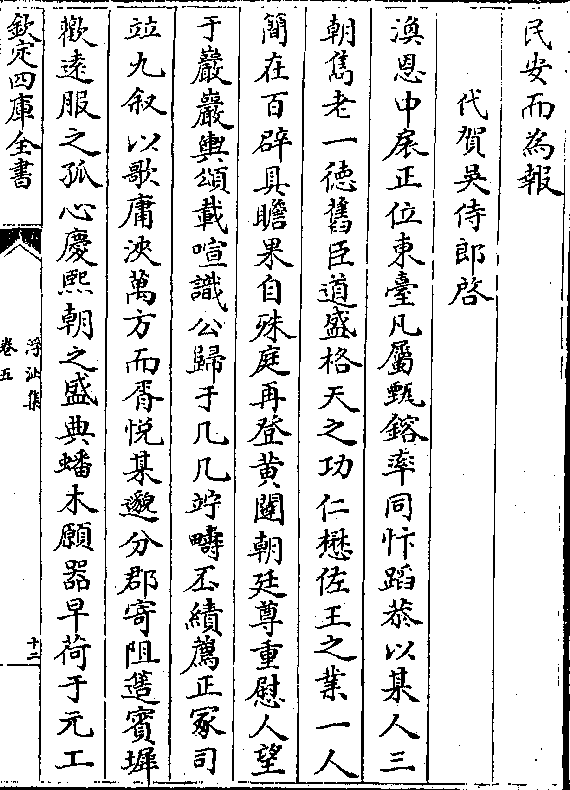 民安而為報
代賀吳侍郎啓
渙恩中扆正位東臺凡屬甄鎔率同忭蹈恭以某人三
朝雋老一徳舊臣道盛格天之功仁懋佐王之業一人
簡在百辟具瞻果自殊庭再登黄闥朝廷尊重慰人望
于巖巖輿頌載喧識公歸于几几竚疇丕績薦正冢司
竝九叙以歌庸浹萬方而胥悅某邈分郡寄阻簉賓墀
歡逺服之孤心慶熙朝之盛典蟠木願器早荷于元工
欽定四庫全書
浮沚集
卷五
十二